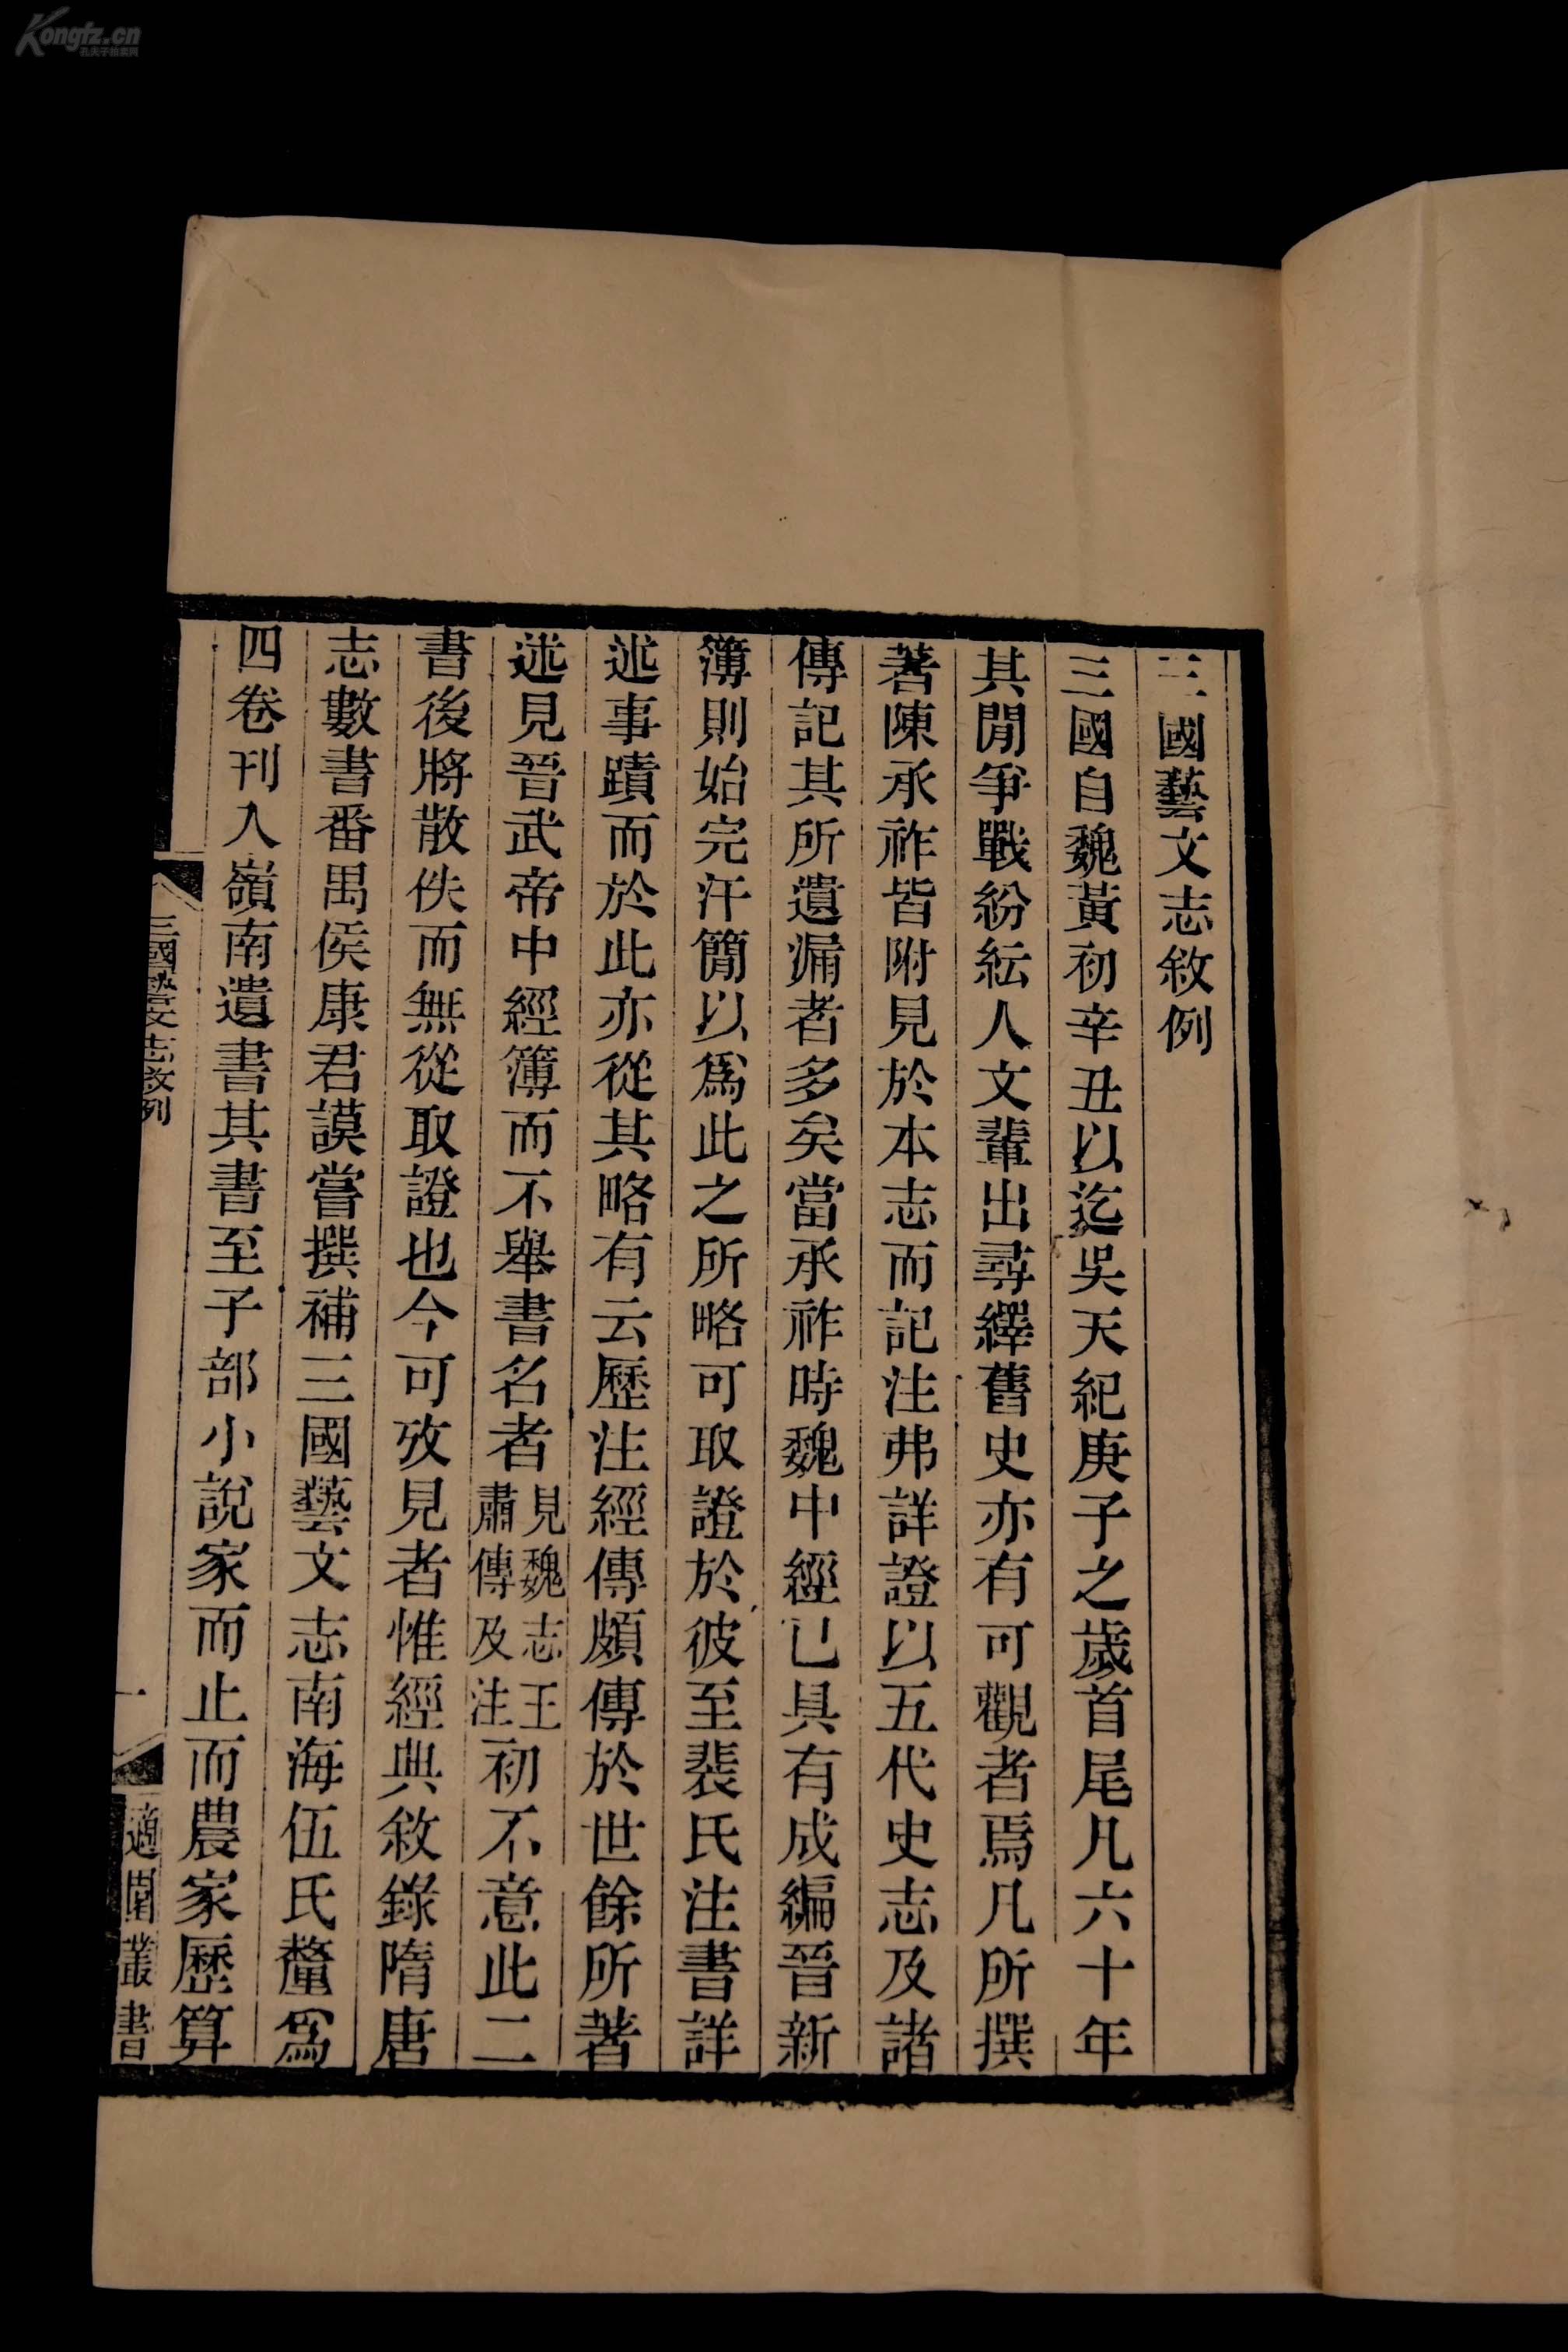 三國藝文志敘例
三國自魏黃初辛丑以迄吳天紀庚子之歲首尾凡六十年
其閒爭戰紛紜人文輩出尋繹舊史亦有可觀者焉凡所撰
著陳承祚皆附見於本志而記注弗詳證以五代史志及諸
傳記其所遺漏者多矣當承祚時魏中經已具有成編晉新
簿則始完汗簡以爲此之所略可取證於彼至裴氏注書詳
述事蹟而於此亦從其略有云歷注經傳頗傳於世餘所著
述見晉武帝中經簿而不舉書名者見魏志王肅傳及注初不意此二
書後將散佚而無從取證也今可攷見者惟經典敘錄隋唐
志數書番禺侯康君謨嘗撰補三國藝文志南海伍氏釐爲
四卷刊入嶺南遺書其書至子部小說家而止而農家歷算
三國藝文志敘例
一
適園叢書
Kongfz.cn
孔夫子舊書網